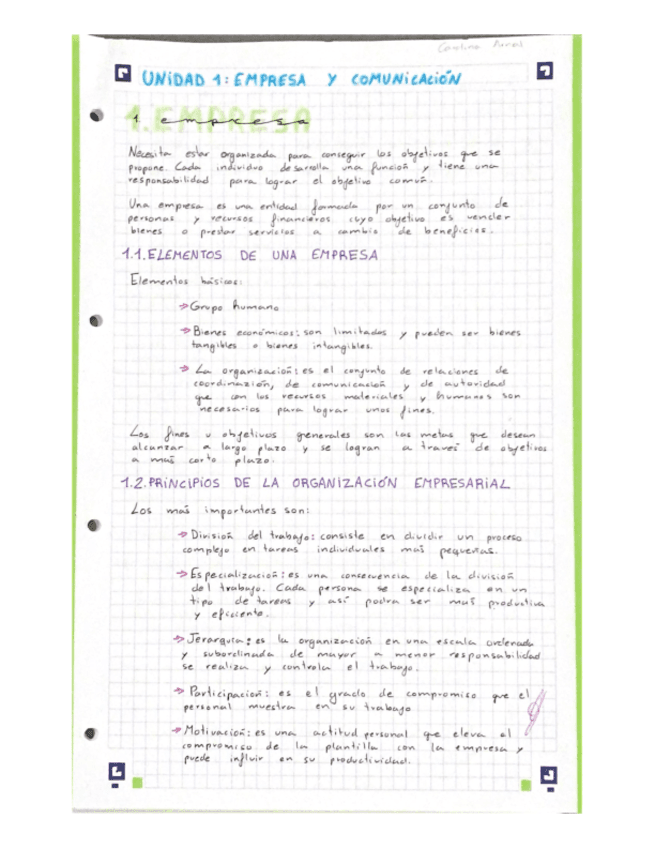 Carolina
UNIDAD 1: EMPRESA Y COMUNICACIÓN
1. EMPRESA
1. empresa
Necesita estar organizada para conseguir los objetivos que se
propone. Cada individuo desarrolla una función y tiene una
responsabilidad para lograr el objetivo común.
Una empresa es una entidad formada por un conjunto de
personas y recursos financieros cuyo objetivo es vender
bienes o prestar servicios a cambio de beneficios.
1.1. ELEMENTOS DE UNA EMPRESA
Elementos básicos:
→ Grupo humano
→ Bienes económicos: son limitados y pueden ser bienes
tangibles o bienes intangibles.
→ La organización: es el conjunto de relaciones de
coordinazión, de comunicación y de autoridad
que con los recursos materiales y humanos son
necesarios para lograr unos fines.
Los fines u objetivos generales son las metas que desean
alcanzar a largo plazo y se logran a través de objetivos
a más corto plazo.
1.2. PRINCIPIOS DE LA ORGANIZACIÓN EMPRESARIAL
Los más importantes son:
→ División del trabajo: consiste en dividir un proceso
complejo en tareas individuales más pequeñas.
→ Especialización: es una consecuencia de la división
del trabajo. Cada persona se especializa en un
tipo de tareas y así podra ser más productiva
y eficiente.
→ Jerarquía: es la organización en una escala ordenada
y subordinada de mayor a menor responsabilidad
se realiza y controla el trabajo.
→ Participación: es el grado de compromiso que el
personal muestra en su trabajo
→ Motivación: es una actitud personal que eleva el
compromiso de la plantilla con la empresa y
puede influir en su productividad.